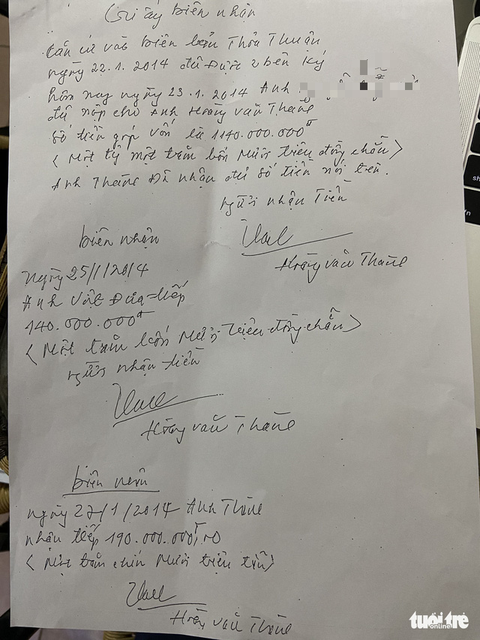 Giấy biên nhận
Căn cứ vào biên bản Thỏa Thuận
ngày 22.1.2014 đã được 2 bên ký
hôm nay ngày 23.1.2014 Anh
đã nộp cho Anh Hoàng văn Thành
Số tiền góp vốn là 1140.000.000đ
< Một tỷ một trăm bốn Mươi triệu đồng chẵn>
Anh Thành Đã nhận đủ số tiền nói trên.
người nhận Tiền
Hoàng văn Thành
biên nhận
ngày 25/1/2014
Anh Đưa tiếp
140.000.000đ
< Một trăm bốn Mươi triệu đồng chẵn>
người nhận tiền
Hoàng văn Thành
biên nhận
ngày 27/1/2014 Anh Thành
nhận tiếp 190.000.000
< Một trăm chín Mươi triệu>
Hoàng văn Thành
tuổi trẻ
online